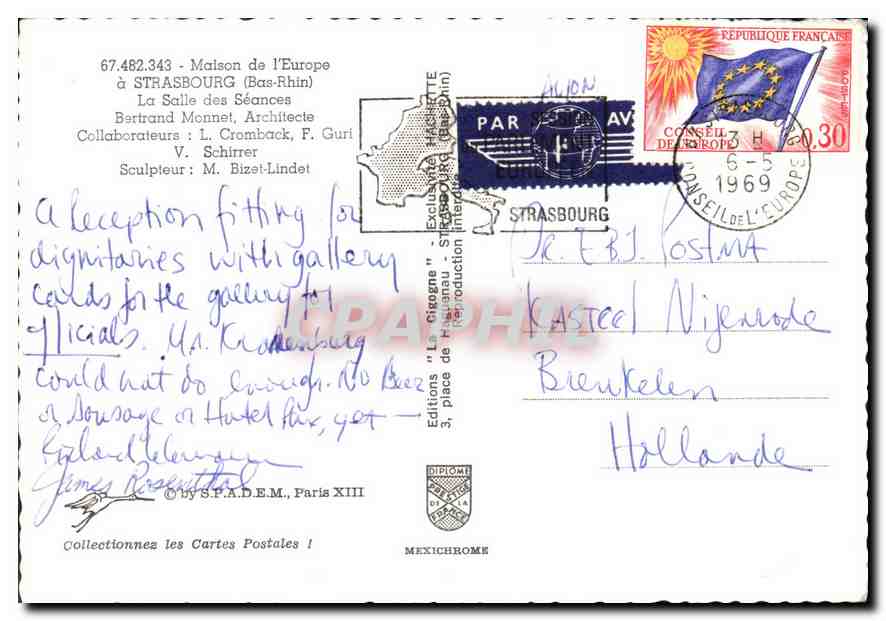 67.482.343 - Maison de l'Europe
à STRASBOURG (Bas-Rhin)
La Salle des Séances
Bertrand Monnet, Architecte
Collaborateurs : L. Cromback, F. Guri
V. Schirrer
Sculpteur : M. Bizet-Lindet
A Reception fitting for
dignitaries with gallery
cards for the gallery for
officials. Mr. Kronenburg
could not do enough. No Beer
or Sausage or Hotel Pax, yet —
James Rosenthal
© by S.P.A.D.E.M., Paris XIII
Collectionnez les Cartes Postales !
Editions "La Cigogne" - Exclusivité HACHETTE
3, place de Haguenau - STRASBOURG (Bas-Rhin)
Reproduction interdite
DIPLOME
PRESTIGE
DE LA
FRANCE
MEXICHROME
CPAPHIL
AVION
PAR AVION
STRASBOURG
RÉPUBLIQUE FRANÇAISE
POSTES
CONSEIL
DE L'EUROPE
0,30
STRASBOURG
13 H
6-5
1969
CONSEIL DE L'EUROPE
Dr. E.B.J. POSTMA
KASTEEL Nijenrode
Breukelen
Hollande